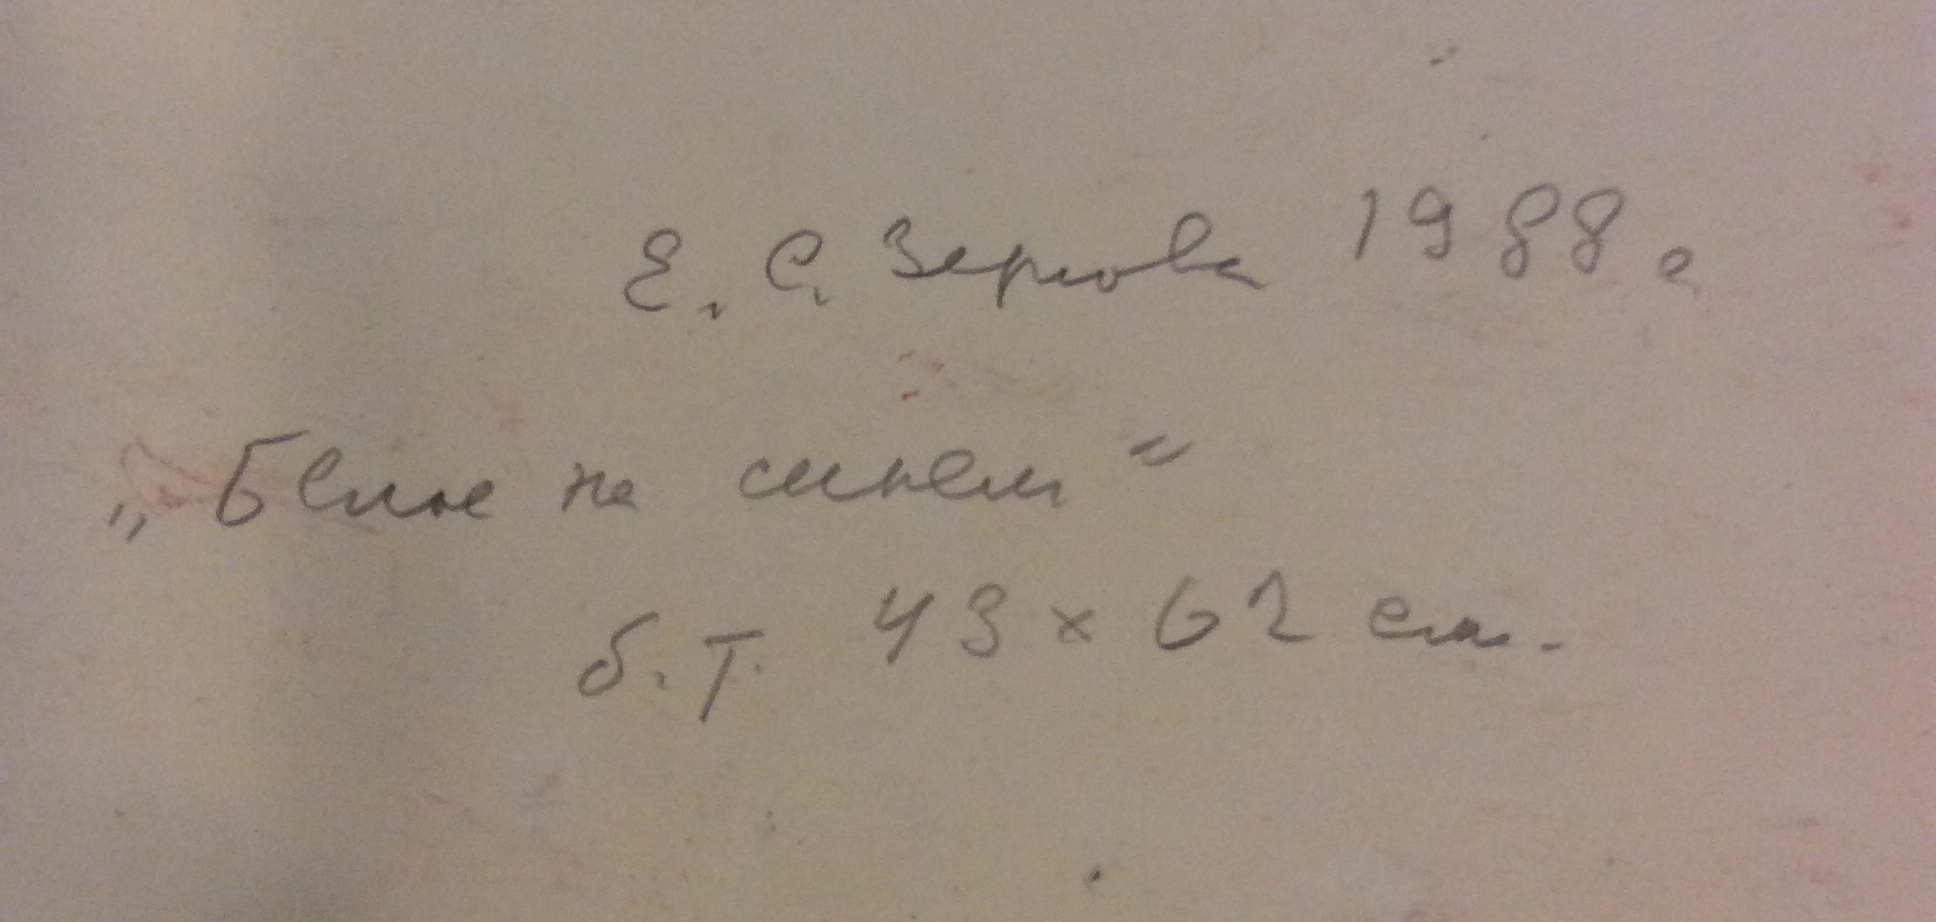 Е. С. Зернова 1988 г
„Белое на синем“
б. т. 43 x 62 см.